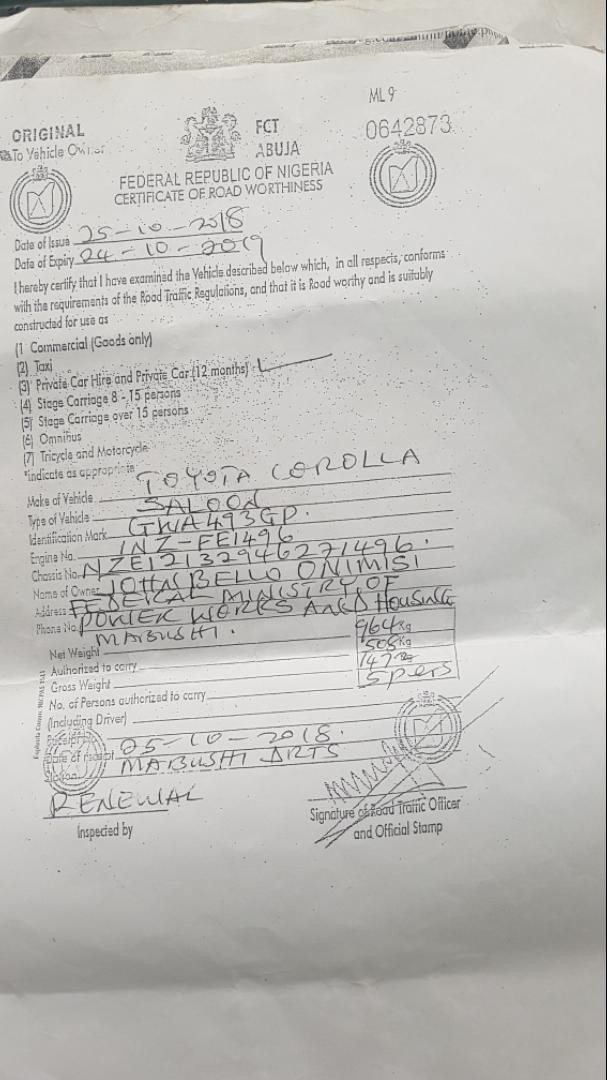 ML 9
ORIGINAL
To Vehicle Owner
FCT
ABUJA
0642873
FEDERAL REPUBLIC OF NIGERIA
CERTIFICATE OF ROAD WORTHINESS
Date of Issue 25-10-2018
Date of Expiry 24-10-2019
I hereby certify that I have examined the Vehicle described below which, in all respects, conforms
with the requirements of the Road Traffic Regulations, and that it is Road worthy and is suitably
constructed for use as
(1 Commercial (Goods only)
(2) Taxi
(3) Private Car Hire and Private Car (12 months)
(4) Stage Carriage 8 - 15 persons
(5) Stage Carriage over 15 persons
(6) Omnibus
(7) Tricycle and Motorcycle
*indicate as appropriate
Make of Vehicle TOYOTA COROLLA
Type of Vehicle SALOON
Identification Mark GWA493GP.
Engine No. 1NZ-FE1496
Chassis No. NZE12132946271496.
Name of Owner JOHN BELLO ONIMISI
Address FEDERAL MINISTRY OF
Phone No. POWER WORKS AND HOUSING
MABUSHI.
Net Weight 964Kg
Authorized to carry 505Kg
Gross Weight
No. of Persons authorized to carry 5pers
(Including Driver)
Date of receipt 25-10-2018.
Station MABUSHI DRTS
RENEWAL
Inspected by
Signature of Road Traffic Officer
and Official Stamp